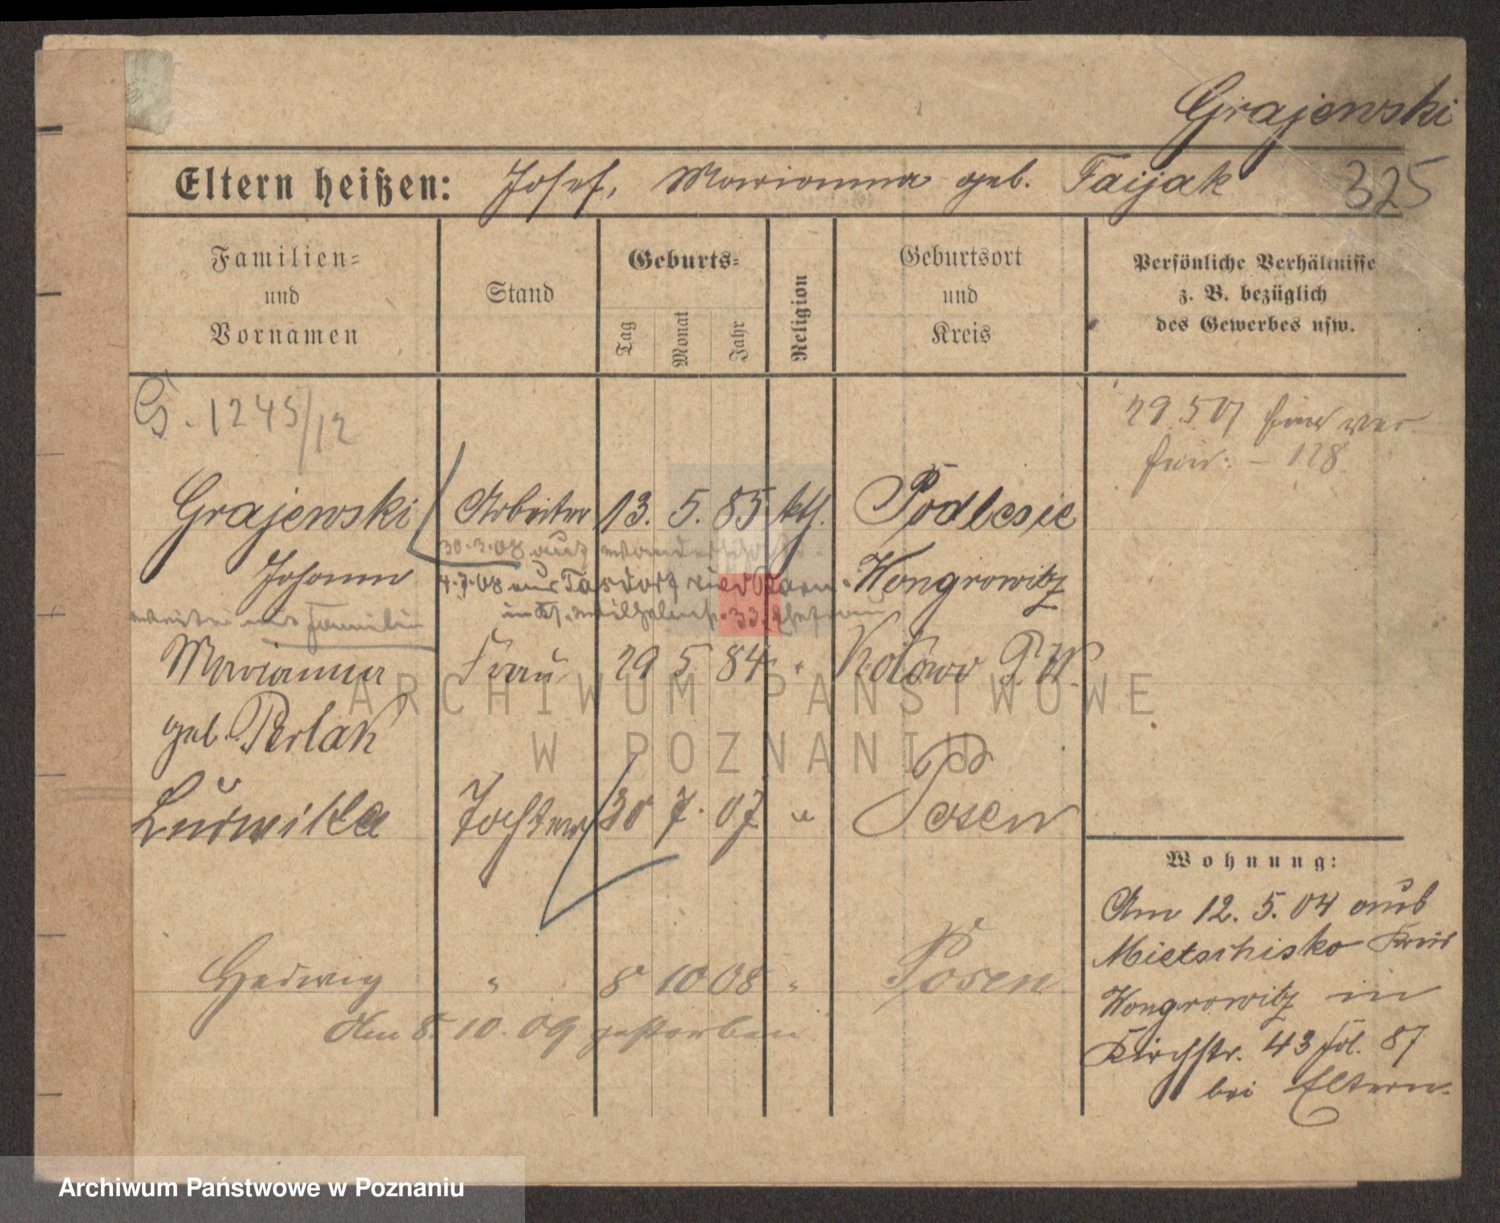 Grajewski
Eltern heißen: Josef, Marianna geb. Faijak 325
Familien-
und
Vornamen
Stand
Geburts-
Tag
Monat
Jahr
Religion
Geburtsort
und
Kreis
Persönliche Verhältnisse
z. B. bezüglich
des Gewerbes usw.
G. 1245/12
29.5.07
128
Grajewski Arbeiter 13. 5. 85 kth. Podlesie
30.3.08 auf Wanderschaft
Johann Wongrowitz
4.7.08 aus
Familie
Marianna Frau 29 5 84 " P. W.
geb. Perlak
Ludwika Tochter 30 7. 07 " Posen
Hedwig " 8 10 08 " Posen
Am 8. 10. 09 gestorben
Wohnung:
Am 12. 5. 04 aus
Mietschisko Kreis
Wongrowitz in
Kirchstr. 43 fol. 87
bei Eltern.
ARCHIWUM PAŃSTWOWE
W POZNANIU
Archiwum Państwowe w Poznaniu